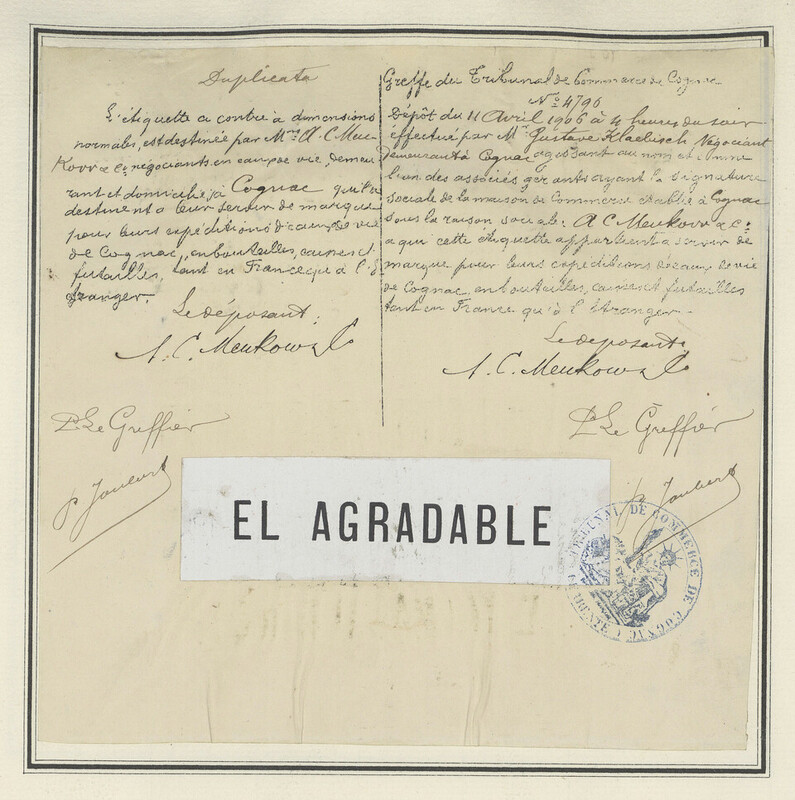 Duplicata
L'étiquette ci contre à dimensions
normales, est destinée par Mrs A. C. Meu-
Kow & Co négociants en eaux de vie, demeu
rant et domiciliés à Cognac qu'ils
destinent à leur servir de marque
pour leurs expéditions d'eaux de vie
de Cognac, en bouteilles, caisses et
futailles, tant en France qu'à l'É-
tranger.
Le déposant:
A. C. Meukow & Co
Pr Le Greffier
P. Joubert
Greffe du Tribunal de Commerce de Cognac
No 4796
Dépôt du 11 Avril 1906 à 4 heures du soir
effectué par Mr Gustave Klaebisch Négociant
demeurant à Cognac agissant au nom et comme
l'un des associés gérants ayant la signature
sociale de la maison de Commerce établie à Cognac
sous la raison sociale: A C Meukow & Co
à qui cette étiquette appartient à servir de
marque pour leurs expéditions d'eaux de vie
de Cognac, en bouteilles, caisses et futailles
tant en France qu'à l'étranger.
Le déposant:
A. C. Meukow & Co
Pr Le Greffier
P. Joubert
EL AGRADABLE
TRIBUNAL DE COMMERCE DE COGNAC
(CHARENTE)